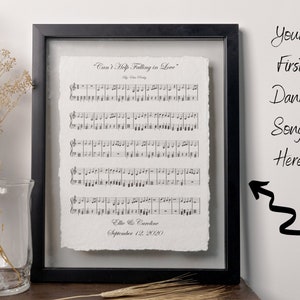 "Can't Help Falling in Love"
Your
First
Dance
Song
Here
Ellie & Caroline
September 12, 2020